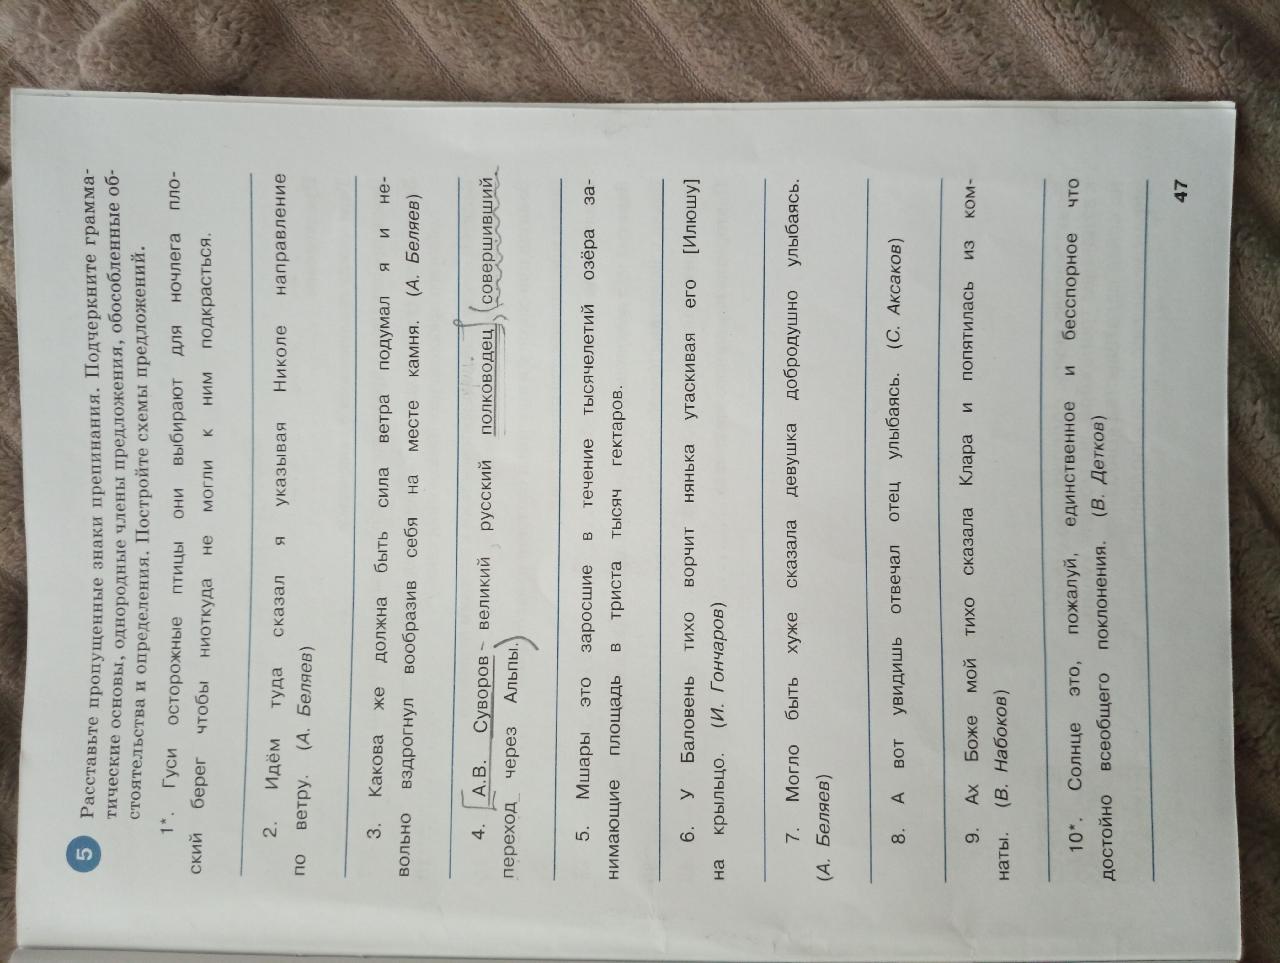 5 Расставьте пропущенные знаки препинания. Подчеркните грамма-
тические основы, однородные члены предложения, обособленные об-
стоятельства и определения. Постройте схемы предложений.
1*. Гуси осторожные птицы они выбирают для ночлега пло-
ский берег чтобы ниоткуда не могли к ним подкрасться.
2. Идём туда сказал я указывая Николе направление
по ветру. (А. Беляев)
3. Какова же должна быть сила ветра подумал я и не-
вольно вздрогнул вообразив себя на месте камня. (А. Беляев)
4. [А.В. Суворов – великий, русский полководец], (совершивший
переход через Альпы.)
5. Мшары это заросшие в течение тысячелетий озёра за-
нимающие площадь в триста тысяч гектаров.
6. У Баловень тихо ворчит нянька утаскивая его [Илюшу]
на крыльцо. (И. Гончаров)
7. Могло быть хуже сказала девушка добродушно улыбаясь.
(А. Беляев)
8. А вот увидишь отвечал отец улыбаясь. (С. Аксаков)
9. Ах Боже мой тихо сказала Клара и попятилась из ком-
наты. (В. Набоков)
10*. Солнце это, пожалуй, единственное и бесспорное что
достойно всеобщего поклонения. (В. Детков)
47